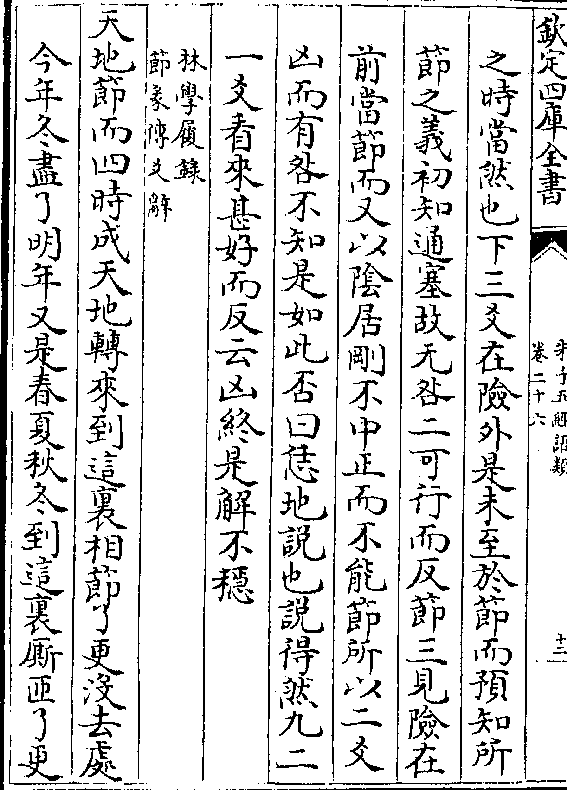 欽定四庫全書
朱子五經語類
卷二十六
十二
之時當然也下三爻在險外是未至於節而預知所
節之義初知通塞故无咎二可行而反節三見險在
前當節而又以陰居剛不中正而不能節所以二爻
凶而有咎不知是如此否曰恁地說也說得然九二
一爻看來甚好而反云凶終是解不穩
林學履錄
節彖傳爻辭
天地節而四時成天地轉來到這裏相節了更沒去處
今年冬盡了明年又是春夏秋冬到這裏厮匝了更